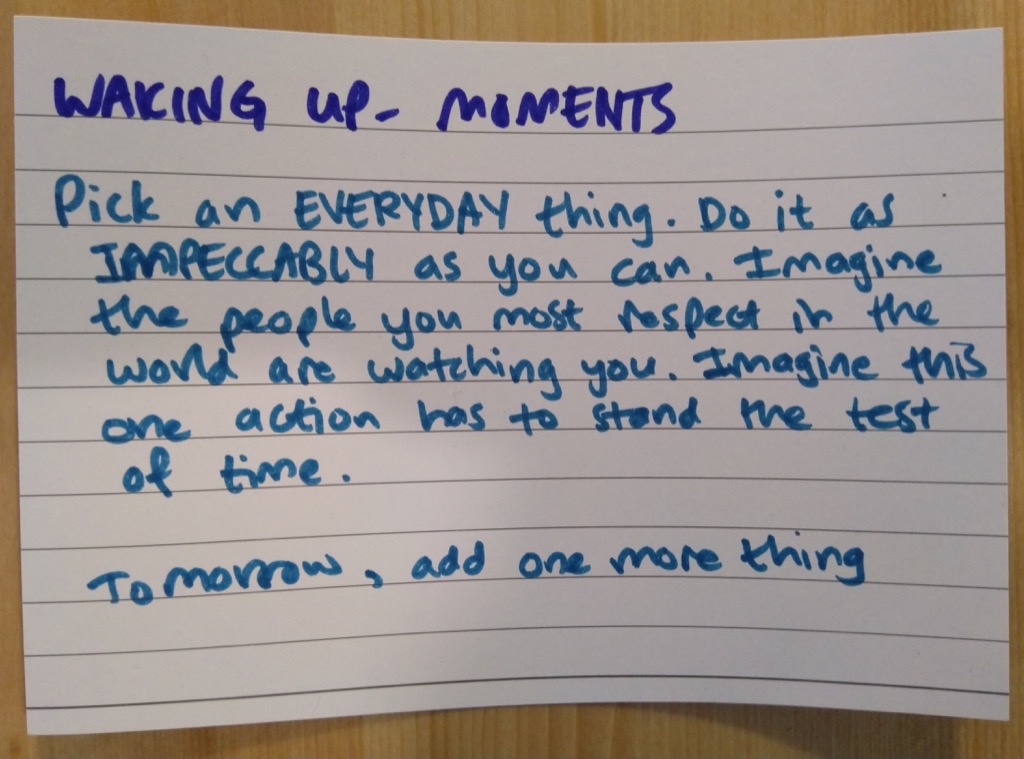 WAKING UP- MOMENTS
Pick an EVERYDAY thing. Do it as
IMPECCABLY as you can. Imagine
the people you most respect in the
world are watching you. Imagine this
one action has to stand the test
of time.
Tomorrow, add one more thing